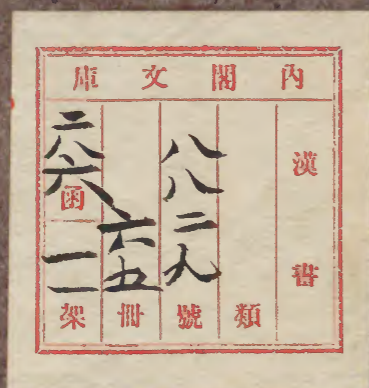 內閣文庫
漢書
類
八八二九號
六五冊
二八六函
一一架